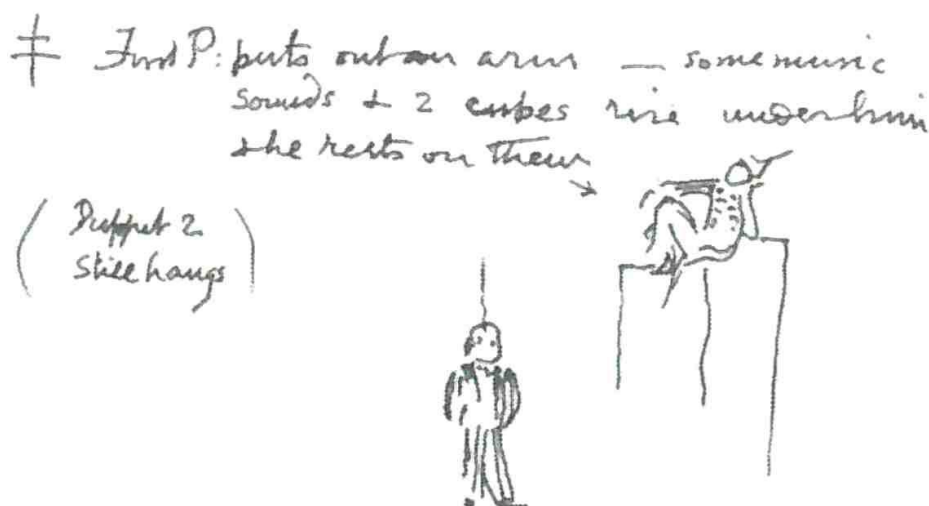 ‡ First P: puts out an arm — some music
sounds & 2 cubes rise under him
& he rests on them
( Puppet 2
still hangs )